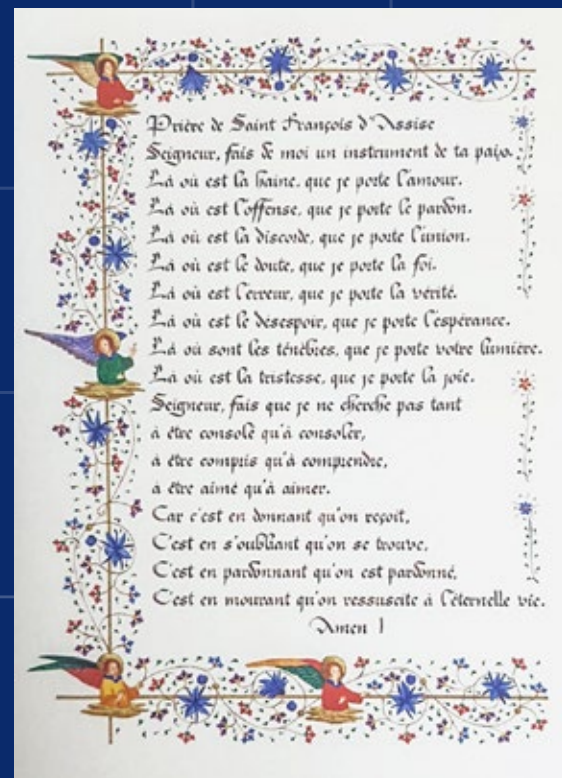 Prière de Saint François d'Assise
Seigneur, fais de moi un instrument de ta paix.
Là où est la haine, que je porte l'amour.
Là où est l'offense, que je porte le pardon.
Là où est la discorde, que je porte l'union.
Là où est le doute, que je porte la foi.
Là où est l'erreur, que je porte la vérité.
Là où est le désespoir, que je porte l'espérance.
Là où sont les ténèbres, que je porte votre lumière.
Là où est la tristesse, que je porte la joie.
Seigneur, fais que je ne cherche pas tant
à être consolé qu'à consoler,
à être compris qu'à comprendre,
à être aimé qu'à aimer.
Car c'est en donnant qu'on reçoit,
C'est en s'oubliant qu'on se trouve,
C'est en pardonnant qu'on est pardonné,
C'est en mourant qu'on ressuscite à l'éternelle vie.
Amen !